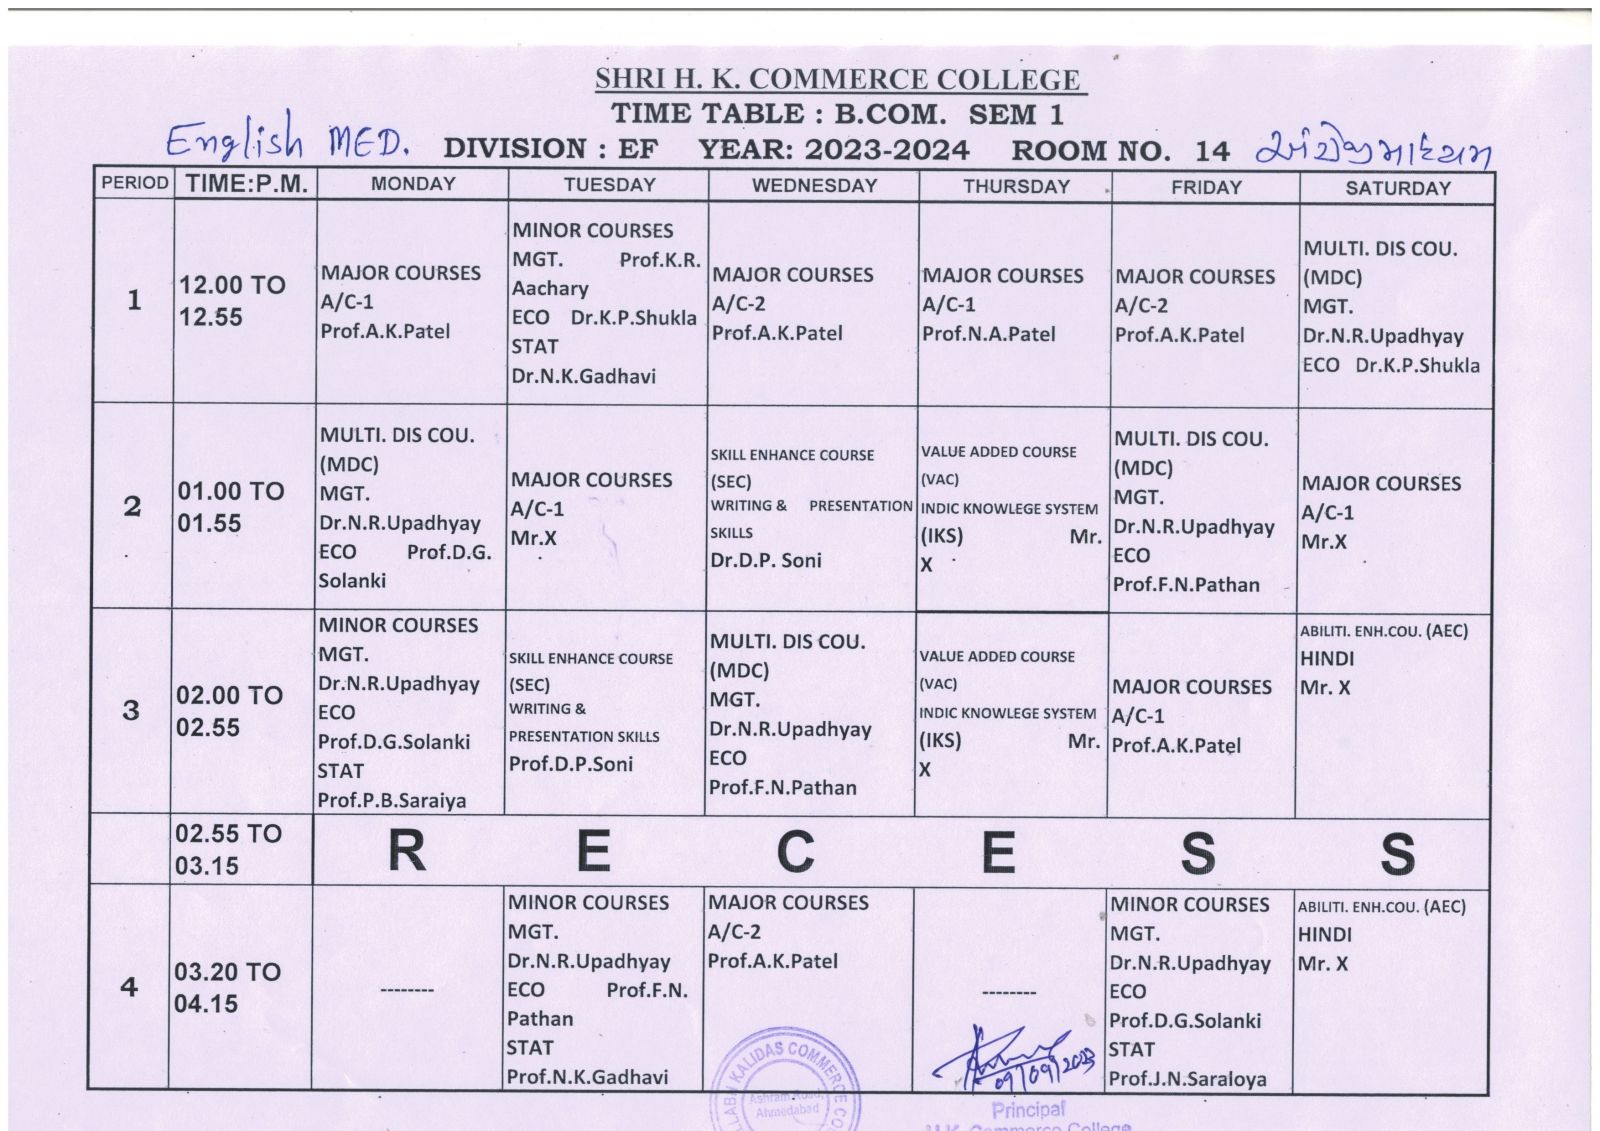 SHRI H. K. COMMERCE COLLEGE
TIME TABLE : B.COM. SEM 1
English MED. DIVISION : EF YEAR: 2023-2024 ROOM NO. 14 અંગ્રેજી માધ્યમ
PERIOD TIME:P.M. MONDAY TUESDAY WEDNESDAY THURSDAY FRIDAY SATURDAY
1
12.00 TO
12.55
MAJOR COURSES
A/C-1
Prof.A.K.Patel
MINOR COURSES
MGT. Prof.K.R.
Aachary
ECO Dr.K.P.Shukla
STAT
Dr.N.K.Gadhavi
MAJOR COURSES
A/C-2
Prof.A.K.Patel
MAJOR COURSES
A/C-1
Prof.N.A.Patel
MAJOR COURSES
A/C-2
Prof.A.K.Patel
MULTI. DIS COU.
(MDC)
MGT.
Dr.N.R.Upadhyay
ECO Dr.K.P.Shukla
2
01.00 TO
01.55
MULTI. DIS COU.
(MDC)
MGT.
Dr.N.R.Upadhyay
ECO Prof.D.G.
Solanki
MAJOR COURSES
A/C-1
Mr.X
SKILL ENHANCE COURSE
(SEC)
WRITING & PRESENTATION
SKILLS
Dr.D.P. Soni
VALUE ADDED COURSE
(VAC)
INDIC KNOWLEGE SYSTEM
(IKS) Mr.
X
MULTI. DIS COU.
(MDC)
MGT.
Dr.N.R.Upadhyay
ECO
Prof.F.N.Pathan
MAJOR COURSES
A/C-1
Mr.X
3
02.00 TO
02.55
MINOR COURSES
MGT.
Dr.N.R.Upadhyay
ECO
Prof.D.G.Solanki
STAT
Prof.P.B.Saraiya
SKILL ENHANCE COURSE
(SEC)
WRITING &
PRESENTATION SKILLS
Prof.D.P.Soni
MULTI. DIS COU.
(MDC)
MGT.
Dr.N.R.Upadhyay
ECO
Prof.F.N.Pathan
VALUE ADDED COURSE
(VAC)
INDIC KNOWLEGE SYSTEM
(IKS) Mr.
X
MAJOR COURSES
A/C-1
Prof.A.K.Patel
ABILITI. ENH.COU. (AEC)
HINDI
Mr. X
02.55 TO
03.15
R E C E S S
4
03.20 TO
04.15
--------
MINOR COURSES
MGT.
Dr.N.R.Upadhyay
ECO Prof.F.N.
Pathan
STAT
Prof.N.K.Gadhavi
MAJOR COURSES
A/C-2
Prof.A.K.Patel
--------
MINOR COURSES
MGT.
Dr.N.R.Upadhyay
ECO
Prof.D.G.Solanki
STAT
Prof.J.N.Saraloya
ABILITI. ENH.COU. (AEC)
HINDI
Mr. X
09/09/2023
KALIDAS COMMERCE
Ashram Road,
Ahmedabad
Principal
H.K. Commerce College